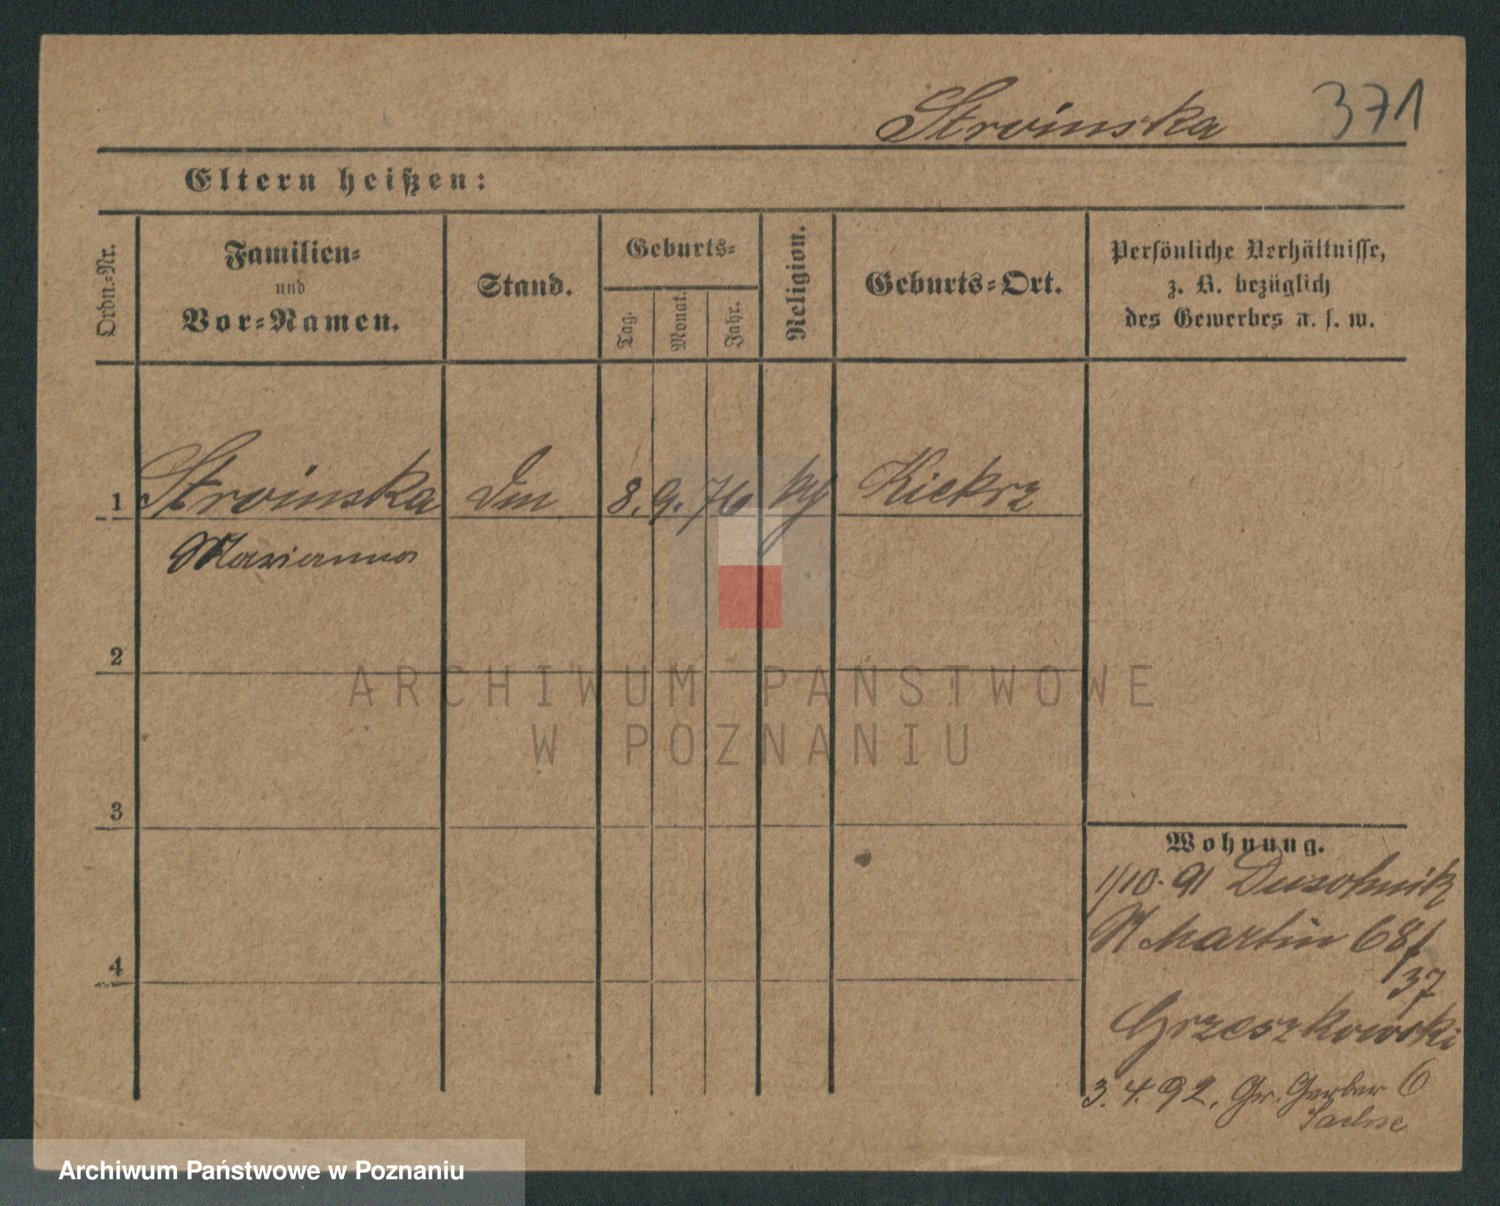 Stroinska 371
Eltern heißen:
Ordn.-Nr.
Familien-
und
Vor-Namen.
Stand.
Geburts-
Tag.
Monat.
Jahr.
Religion.
Geburts-Ort.
Persönliche Verhältnisse,
z. B. bezüglich
des Gewerbes u. s. w.
1 Stroinska 8. 9. 76 Kiekrz
Marianna
2
3
4
Wohnung.
1/10. 91 Dusołnik
St Martin 68/
37
Grzeszkowski
3. 4. 92. Gr. Gerber 6
Sachse
ARCHIWUM PAŃSTWOWE
W POZNANIU
Archiwum Państwowe w Poznaniu